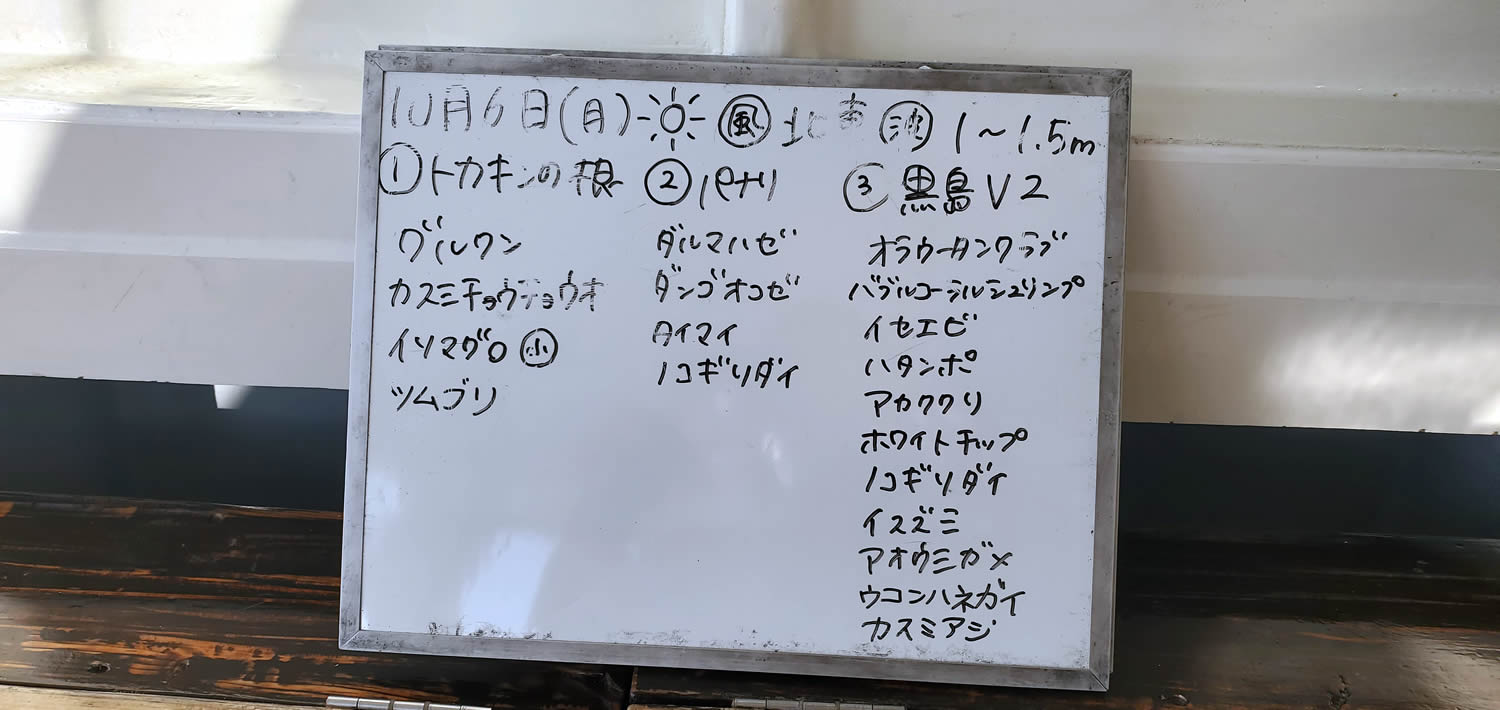 10月6日(月) ☀ 風 北東 波 1~1.5m
①トカキンの根
グルクン
カスミチョウチョウオ
イソマグロ 小
ツムブリ
②パナリ
ダルマハゼ
ダンゴオコゼ
タイマイ
ノコギリダイ
③黒島V2
オラウータンクラブ
バブルコーラルシュリンプ
イセエビ
ハタンポ
アカククリ
ホワイトチップ
ノコギリダイ
イスズミ
アオウミガメ
ウコンハネガイ
カスミアジ